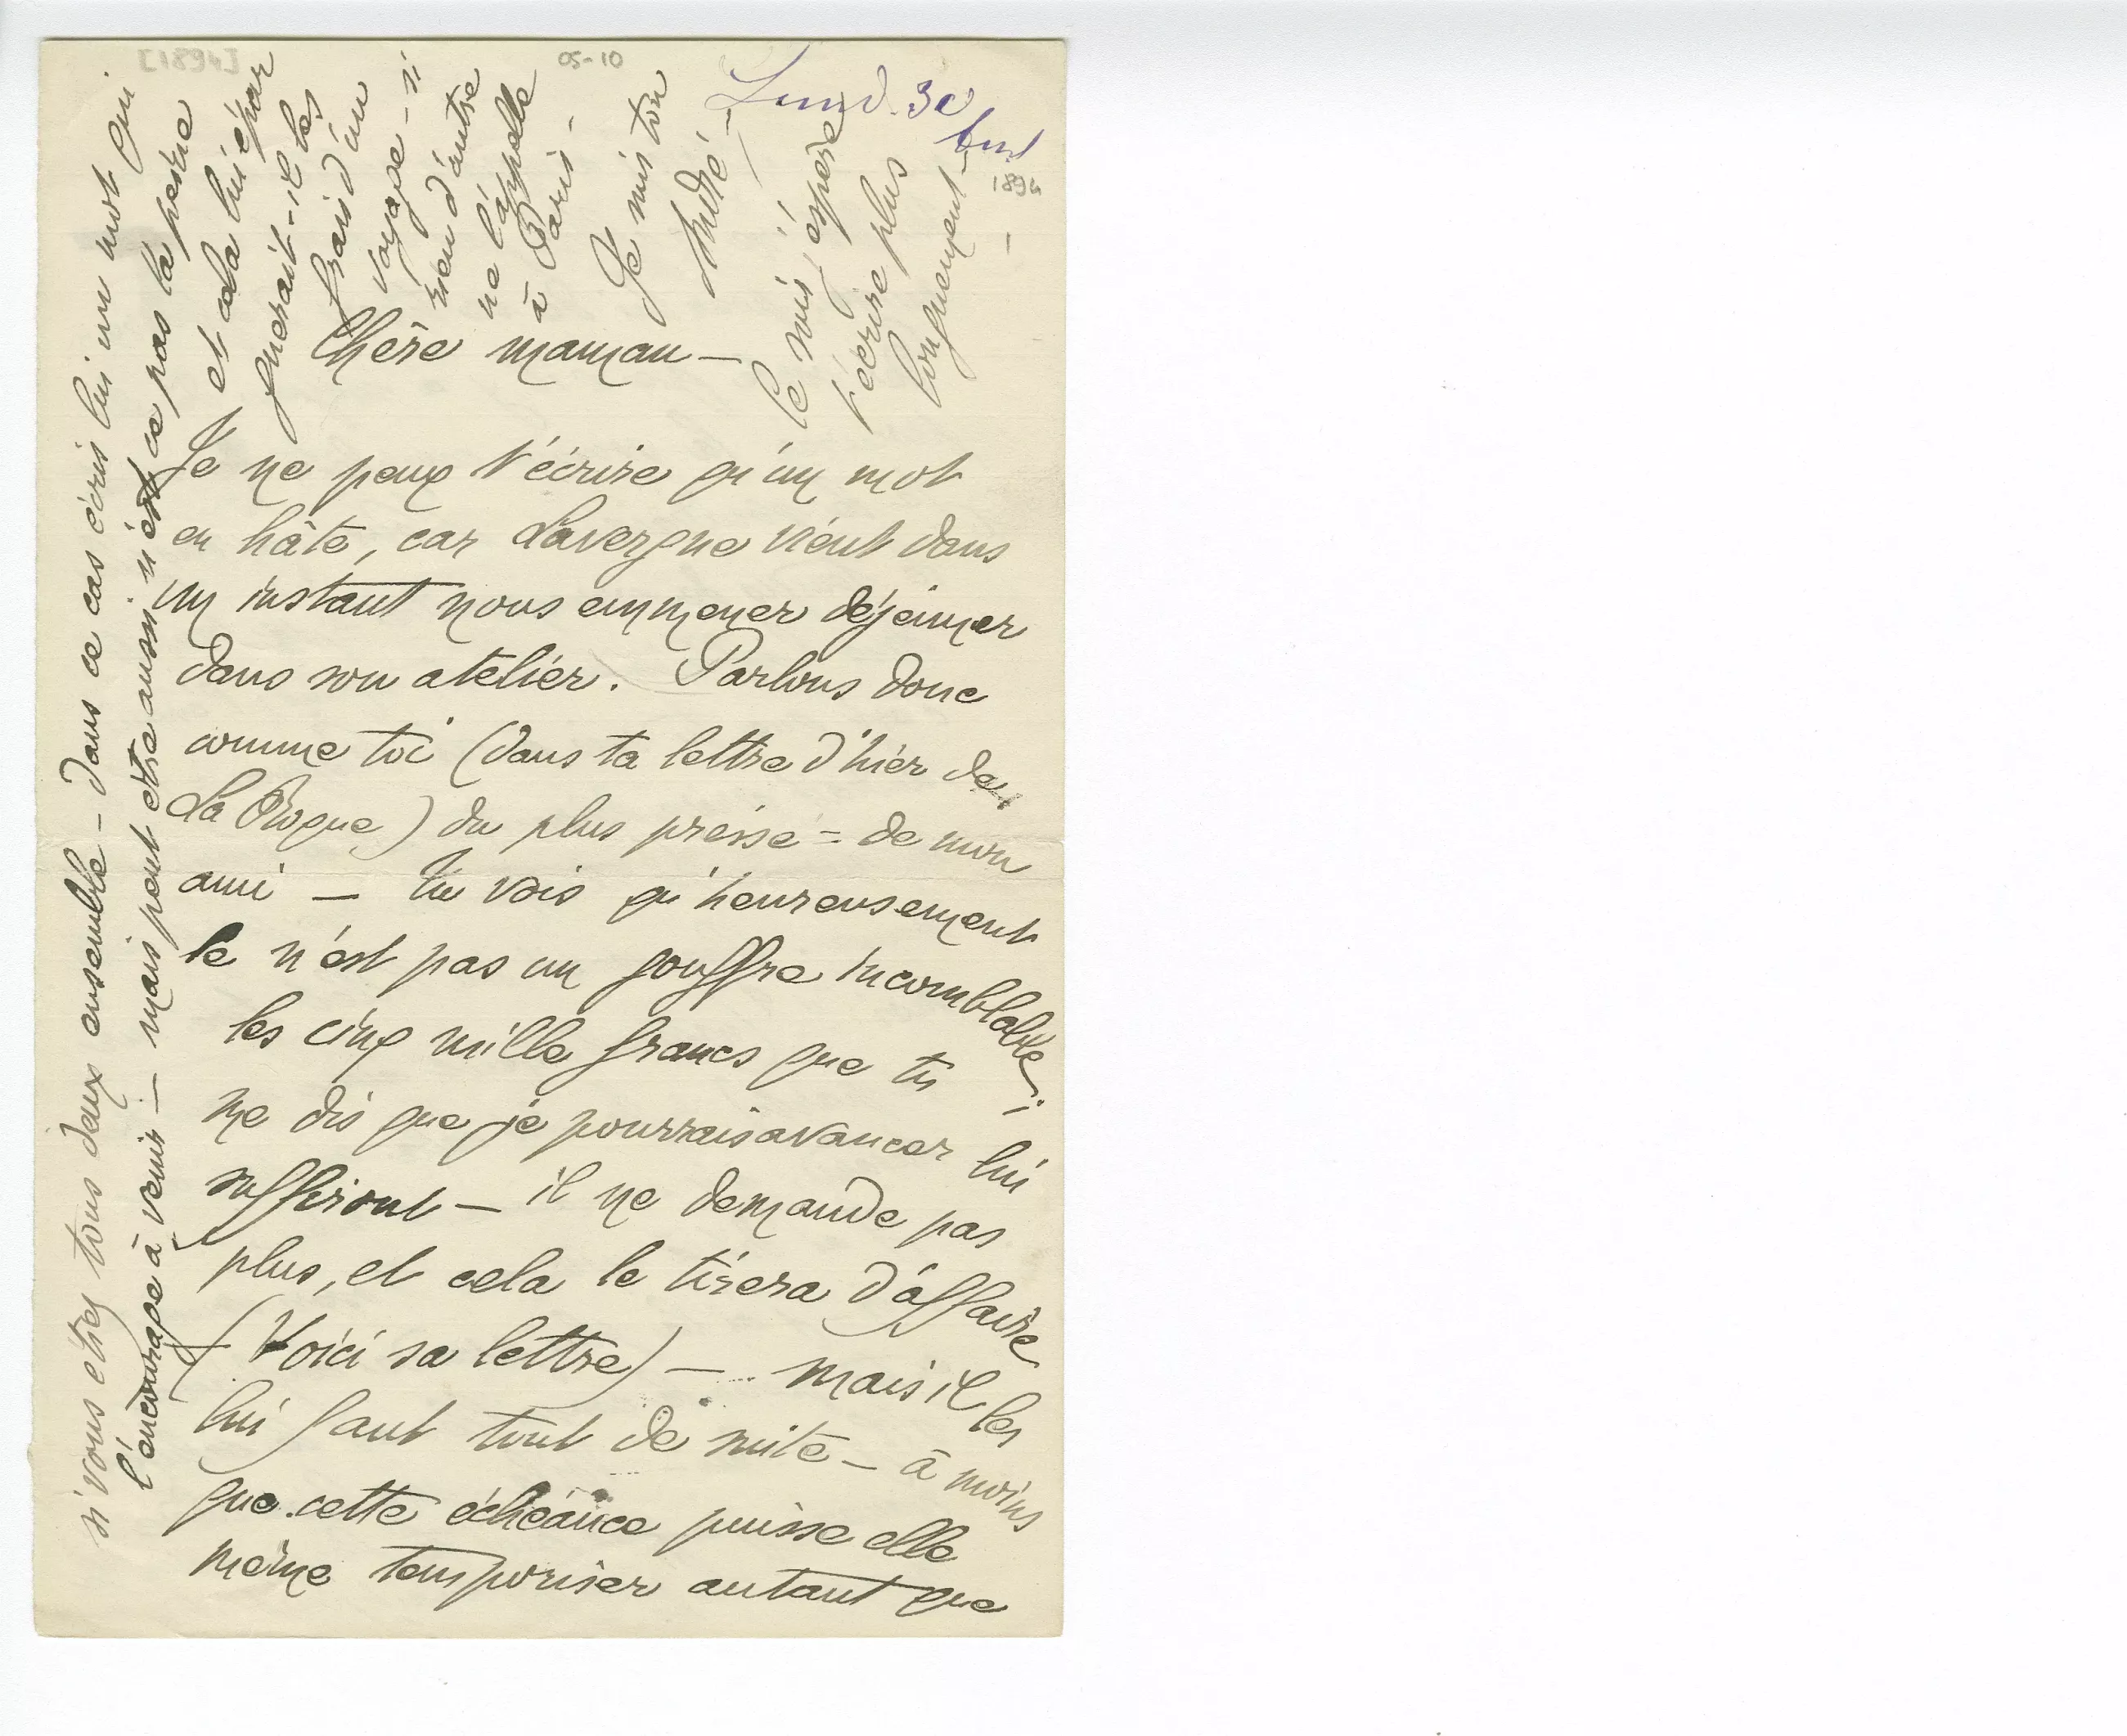 [1894]
05-10
Lund. 30
1894
Chère maman —
Je ne peux t'écrire qu'un mot
en hâte, car Lavergne vient dans
un instant nous emmener déjeuner
dans son atelier. Parlons donc
comme toi (dans ta lettre d'hier de
La Roque) du plus pressé = de mon
ami — tu vois qu'heureusement
ce n'est pas un gouffre incomblable;
les cinq mille francs que tu
me dis que je pourrais avancer lui
suffiront — il ne demande pas
plus, et cela le tirera d'affaire
(Voici sa lettre) — mais il les
lui faut tout de suite — à moins
que cette échéance puisse elle
même temporiser autant que
si vous etiez tous deux ensemble — dans ce cas écris lui un mot qui
l'encourage à venir — mais peut etre aussi n'est ce pas la peine
et cela lui épar
gnerait-il les
frais d'un
voyage — si
rien d'autre
ne l'appelle
à Paris —
Je suis ton
André —
Ce soir j'espère
t'écrire plus
longuement —